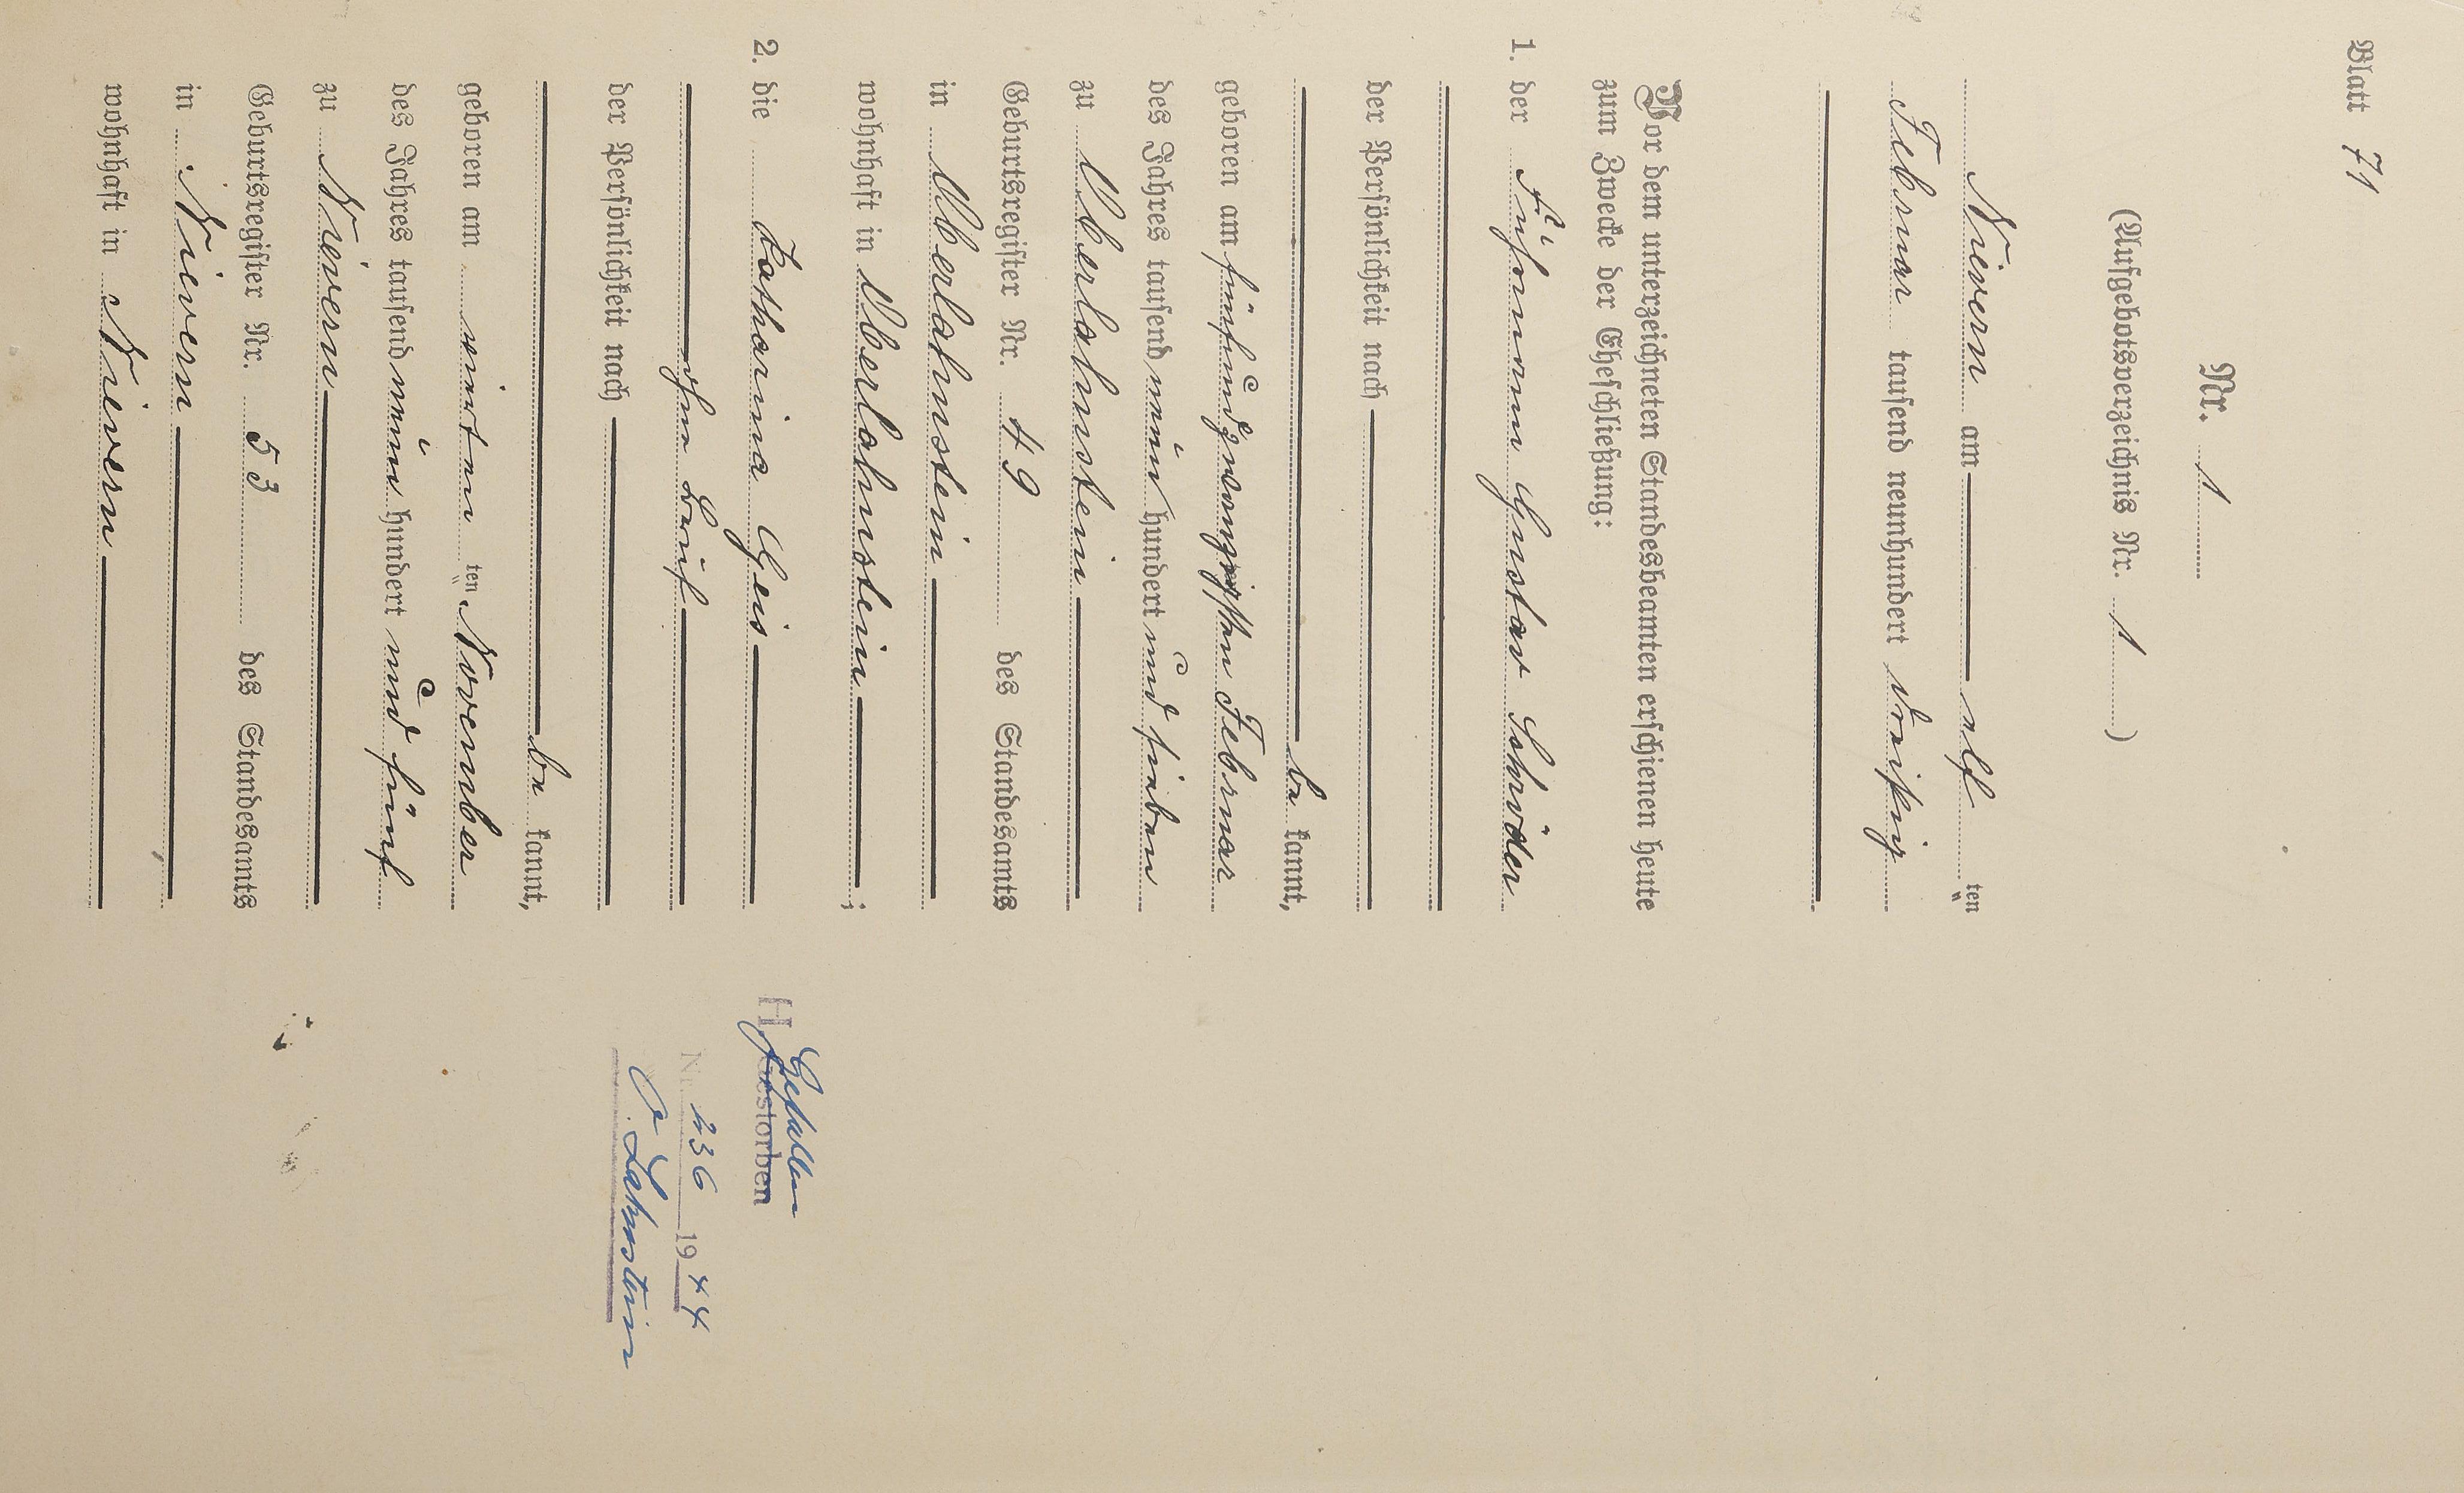 Blatt 71
Nr. 1
(Aufgebotsverzeichnis Nr. 1)
Nievern am elf ten
Februar tausend neunhundert dreißig
Vor dem unterzeichneten Standesbeamten erschienen heute
zum Zwecke der Eheschließung:
1. der Fuhrmann Gustav Schröder
der Persönlichkeit nach
be kannt,
geboren am fünfundzwanzigsten Februar
des Jahres tausend neun hundert und sieben
zu Oberlahnstein
Geburtsregister Nr. 49 des Standesamts
in Oberlahnstein
wohnhaft in Oberlahnstein ;
2. die Katharina Geis
ohne Beruf
der Persönlichkeit nach
be kannt,
geboren am vierten ten November
des Jahres tausend neun hundert und fünf
zu Nievern
Geburtsregister Nr. 53 des Standesamts
in Nievern
wohnhaft in Nievern
Gefallen
H gestorben
Nr. 236 1944
O. Lahnstein